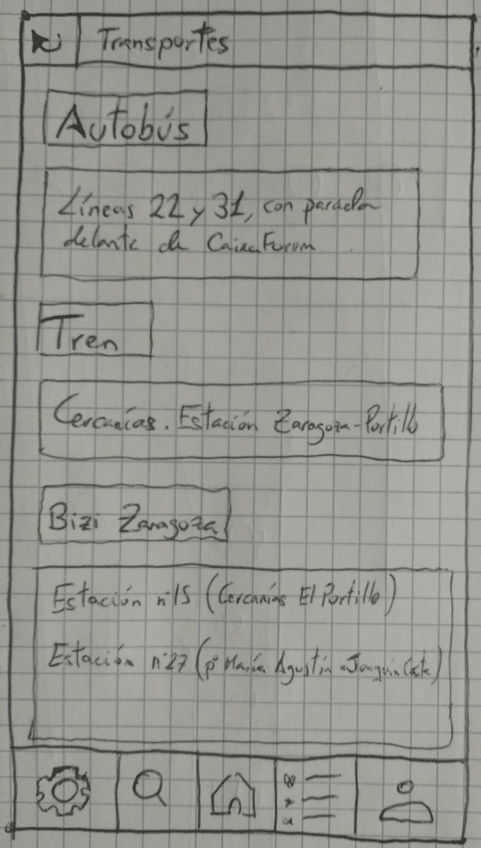 Transportes
Autobús
Líneas 22 y 31, con parada
delante de CaixaForum
Tren
Cercanías. Estación Zaragoza-Portillo
Bizi Zaragoza
Estación nº15 (Cercanías El Portillo)
Estación nº27 (pº María Agustín - Joaquín Costa)